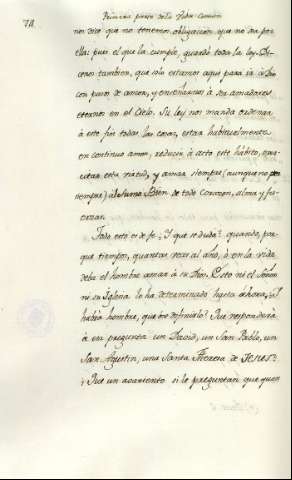 78.
Primera parte de la Vida Comun
nos dice que no tenemos obligacion que no sea por
ella: pues el que la cumple, guarda toda la ley. De-
cimos tambien, que solo estamos aqui para ir a Dios
con pasos de amor, y enseñarnos à ser amadores
eternos en el Cielo. Su ley nos manda ordenar
à este fin todas las cosas, estar habitualmente
en continuo amor, reducir à acto este hábito, exer-
citar esta virtud, y amar siempre (aunque no
siempre) al sumo Bien de todo Corazon, alma y fu-
erzas.
Todo esto es de fe. Y que se duda? quando, por
que tiempos, quantas veces al año, ò en la vida
deba el hombre amar à su Dios. Esto ni el Señor
ni su Iglesia lo ha determinado hasta ahora, y
habrá hombre, que ose definirlo? Que respondería
à esa pregunta un David, un San Pablo, un
San Agustin, una Santa Theresa de JESUS?
Que un avariento si le preguntan que quan